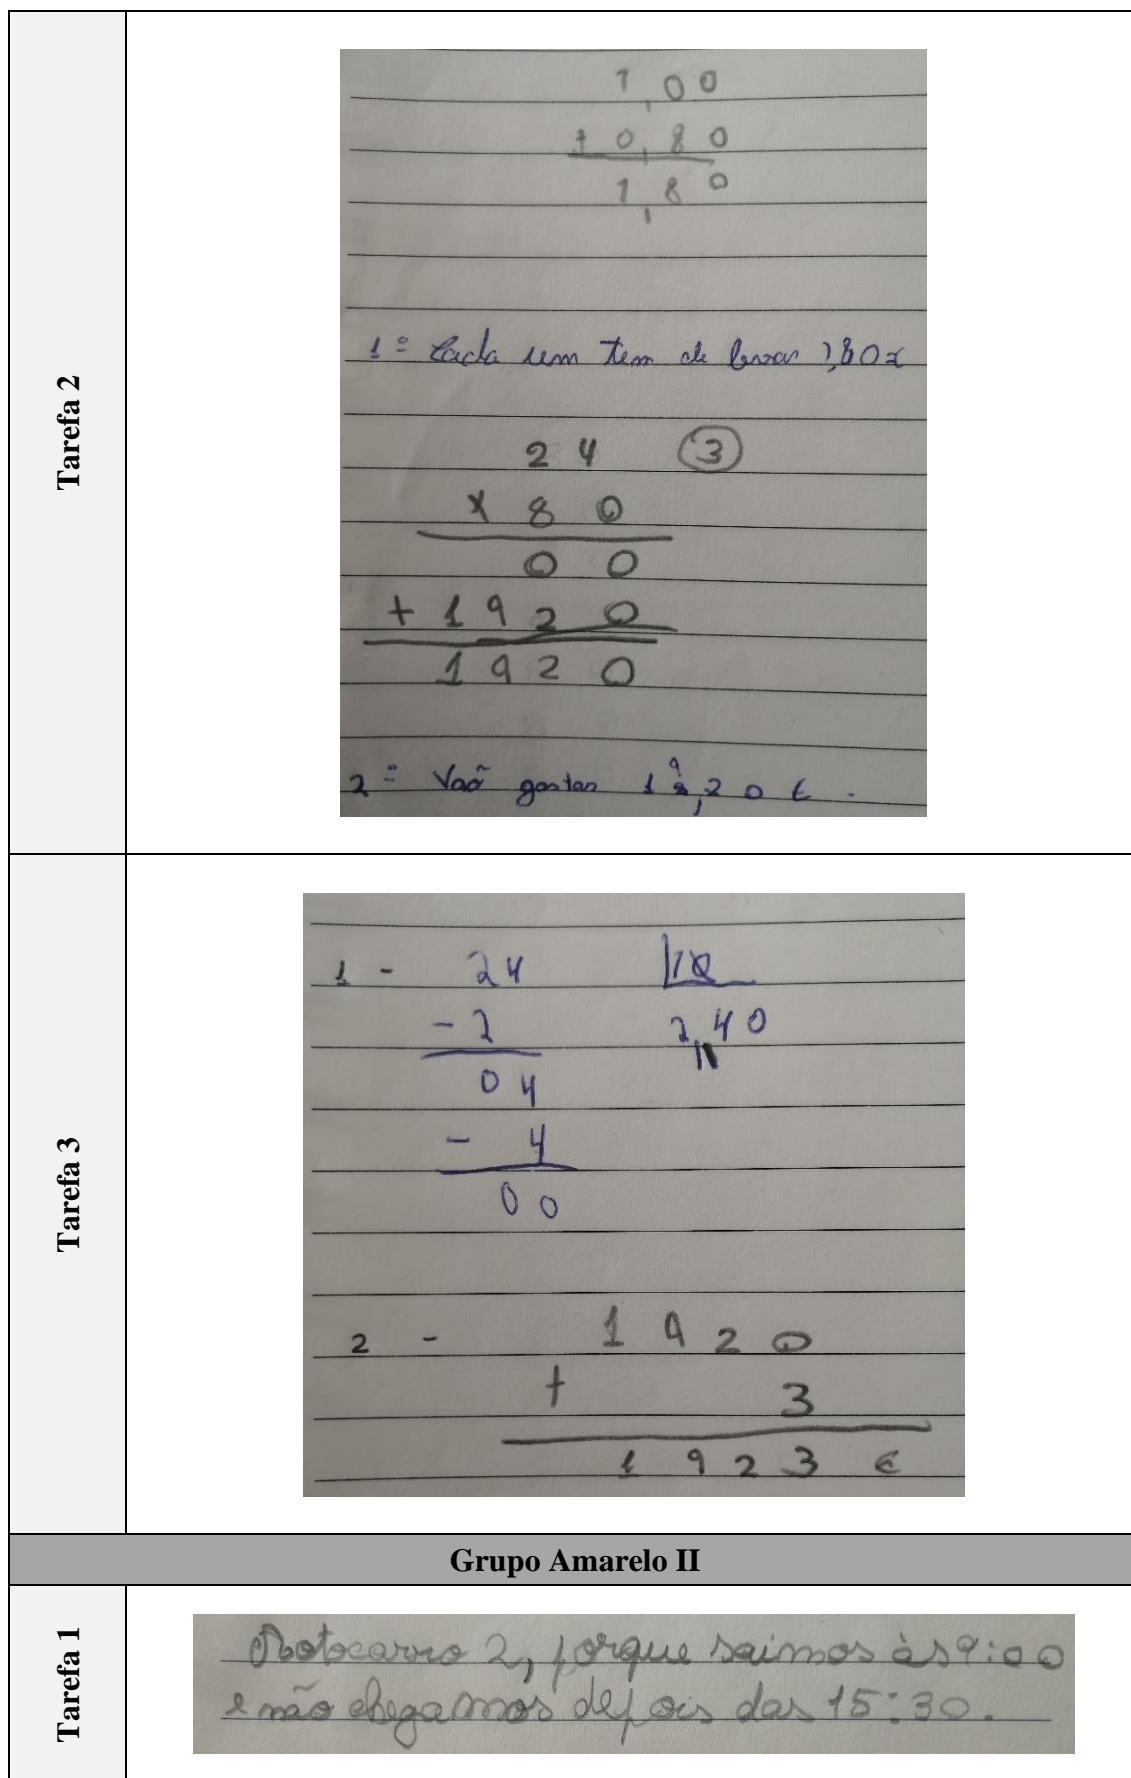 Tarefa 2
1,00
+ 0,80
1,80
1º Cada um tem de levar 1,80€
24 3
x 80
00
+ 1920
1920
2º Vão gastar 19,20 €.
Tarefa 3
1 - 24 10
- 2 2,40
04
- 4
00
2 - 1920
+ 3
1923 €
Grupo Amarelo II
Tarefa 1
Autocarro 2, porque saimos às 9:00
e não chegamos depois das 15:30.